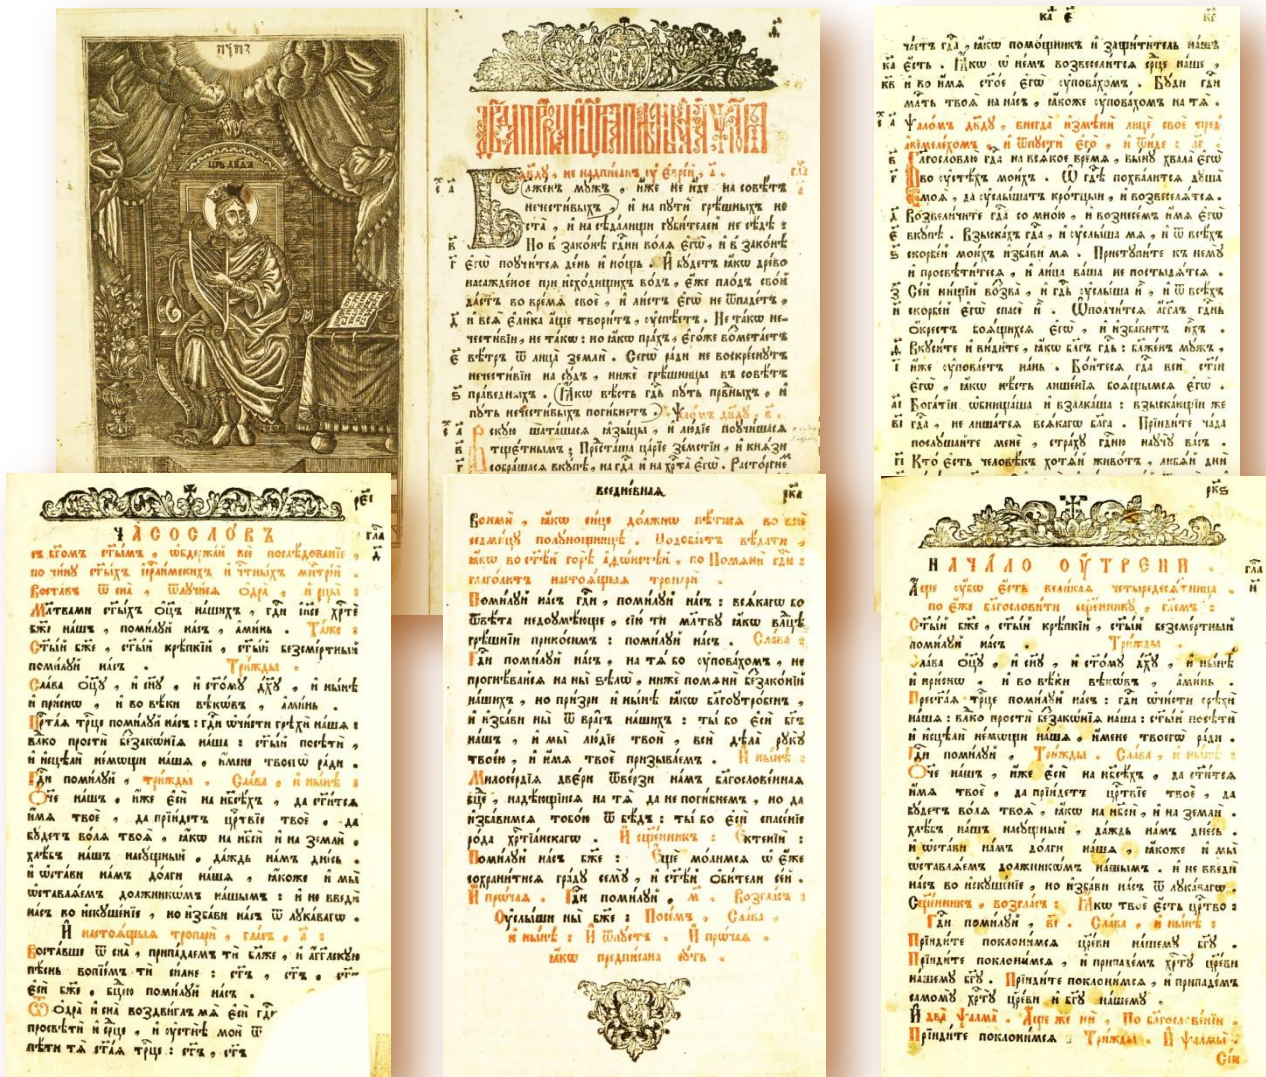 ЦРЬ ДВДЪ
Дв҃ду, не надписанъ ѹ Еврей, а҃.
Блаженъ мужъ, иже не иде на совѣтъ
нечестивыхъ, и на пути грѣшныхъ не
ста, и на сѣдалищи губителей не сѣде:
Но в законѣ гдⷭ҇ни воля Егѡ, и в законѣ
Егѡ поучится день и нощь. И будетъ ꙗкѡ древо
насажденое при исходищихъ водъ, Еже плодъ свой
дастъ во время свое, и листъ Егѡ не ѿпадетъ,
и вся Елика аще творитъ, ѹспѣетъ. Не такѡ не-
честивїи, не такѡ: но ꙗкѡ прахъ, Егоже возметаетъ
вѣтръ ѿ лица земли. Сегѡ ради не воскреснутъ
нечестивїи на судъ, ниже грѣшницы въ совѣтъ
праведныхъ. Ꙗкѡ вѣсть гдⷭ҇ь путь првⷣныхъ, и
путь нечестивыхъ погибнетъ. Ѱаломъ дв҃ду, в҃.
Вскую шаташася ꙗзыцы, и людїе поучишася
тщетнымъ; Предсташа царїе земстїи, и князи
собрашася вкупѣ, на гдⷭ҇а и на хрⷭ҇та Егѡ. Расторгне
часть гдⷭ҇а, ꙗкѡ помощникъ и защититель нашъ
Есть. Ꙗкѡ ѡ немъ возвеселится срⷣце наше,
и во имя ст҃ое Егѡ ѹповахомъ. Буди гдⷭ҇и
млⷭ҇ть твоя на насъ, ꙗкоже ѹповахомъ на тя.
Ѱаломъ дв҃ду, внегда измѣни лице свое пред
авимелехомъ, и ѿпусти Его, и ѿиде: лг҃.
Благословлю гдⷭ҇а на всякое время, выну хвала Егѡ
во ѹстѣхъ моихъ. Ѡ гдⷭ҇ѣ похвалится душа
моя, да ѹслышатъ кротцыи, и возвеселятся.
Возвеличите гдⷭ҇а со мною, и вознесемъ имя Егѡ
вкупѣ. Взыскахъ гдⷭ҇а, и ѹслыша мя, и ѿ всѣхъ
скорбей моихъ избави мя. Приступите къ нему
и просвѣтитеся, и лица ваша не постыдятся.
Сей нищїй возва, и гдⷭ҇ь ѹслыша и, и ѿ всѣхъ
скорбей Егѡ спасе и. Ѡполчится агг҃лъ гдⷭ҇нь
окрестъ боящихся Егѡ, и избавитъ ихъ.
Вкусите и видите, ꙗкѡ бл҃гъ гдⷭ҇ь: блаженъ мужъ,
иже ѹповаетъ нань. Бойтеся гдⷭ҇а вси ст҃їи
Егѡ, ꙗкѡ нѣсть лишенїя боящымся Егѡ.
Богатїи ѡбнищаша и взалкаша: взыскающїи же
гдⷭ҇а, не лишатся всякагѡ бл҃га. Прїидите чада
послушайте мене, страху гдⷭ҇ню научу васъ.
Кто Есть человѣкъ хотяй животъ, любяй дни
ЧАСОСЛОВЪ
съ бг҃омъ ст҃ымъ, ѡбдержай все послѣдованїе,
по чину ст҃ыхъ їеⷭ҇лимскихъ и чⷭ҇тныхъ мн҃трей.
Воставъ ѿ сна, ѿлучися одра, и рцы:
Мл҃твами ст҃ыхъ оц҃ъ нашихъ, гдⷭ҇и їис҃е хрⷭ҇те
бж҃е нашъ, помилуй насъ, аминь. Таже:
Ст҃ый бж҃е, ст҃ый крѣпкїй, ст҃ый безсмертный
помилуй насъ. Трижды.
Слава оц҃у, и сн҃у, и ст҃ому дх҃у, и нынѣ
и приснѡ, и во вѣки вѣкѡвъ, аминь.
Прⷭ҇тая трⷪ҇це помилуй насъ: гдⷭ҇и ѡчисти грѣхи нашя:
вл҃ко прости беззакѡнїя наша: ст҃ый посѣти,
и исцѣли немощи нашя, имене твоегѡ ради.
Гдⷭ҇и помилуй, трижды. Слава, и нынѣ:
Оч҃е нашъ, иже Еси на нб҃сѣхъ, да ст҃ится
имя твое, да прїидетъ црⷭ҇твїе твое, да
будетъ воля твоя, ꙗкѡ на нб҃си и на земли,
хлѣбъ нашъ насущный, даждь намъ днесь.
и ѡстави намъ долги нашя, ꙗкоже и мы
ѡставляемъ должникѡмъ нашымъ: и не введи
насъ во искушенїе, но избави насъ ѿ лукавагѡ.
И настоящыя тропари, гласъ, а҃:
Воставше ѿ сна, припадаемъ ти бл҃же, и агг҃лскую
пѣснь вопїемъ ти силне: ст҃ъ, ст҃ъ, ст҃ъ
Еси бж҃е, бцⷣею помилуй насъ.
Ѿ одра и сна воздвиглъ мя Еси гдⷭ҇и
просвѣти и срⷣце, и ѹстнѣ мои ѿ
пѣти тя ст҃ая трⷪ҇це: ст҃ъ, ст҃ъ
вседневная.
рк҃а
Воими, ꙗкѡ сице должно пѣтися во всю
седмицу полунощницѣ. Подобаетъ вѣдати,
ꙗкѡ во ст҃ѣй горѣ Аѳѡнстѣй, по Помяни гдⷭ҇и:
глаголютъ настоящыя тропари.
Помилуй насъ гдⷭ҇и, помилуй насъ: всякагѡ бо
ѿвѣта недоумѣюще, сїю ти мл҃тву ꙗкѡ влⷣцѣ
грѣшнїи приносимъ: помилуй насъ. Слава:
Гдⷭ҇и помилуй насъ, на тя бо ѹповахомъ, не
прогнѣвайся на ны ѕѣлѡ, ниже помяни беззаконїй
нашихъ, но призри и нынѣ ꙗкѡ благоутробенъ,
и избави ны ѿ врагъ нашихъ: ты бо Еси бг҃ъ
нашъ, и мы людїе твои, вси дѣла руку
твоею, и имя твое призываемъ. И нынѣ:
Милосердїя двери ѿверзи намъ благословенная
бцⷣе, надѣющїися на тя да не погибнемъ, но да
избавимся тобою ѿ бѣдъ: ты бо Еси спасенїе
рода хрⷭ҇тїанскагѡ. И сщ҃енникъ: Ектенїи:
Помилуй насъ бж҃е: Еще молимся ѡ Еже
сохранитися граду сему, и ст҃ѣй обители сей.
И прѡчая. Гдⷭ҇и помилуй, м҃. Возгласъ:
Оуслыши ны бж҃е: Посемъ, Слава,
и нынѣ: И ѿпустъ. И прѡчая.
ꙗкѡ предписана суть.
рк҃ѕ
НАЧАЛО ОУТРЕНИ.
Аще ѹбѡ Есть великая четыредесятница.
по Еже благословити сщ҃еннику, гл҃емъ:
Ст҃ый бж҃е, ст҃ый крѣпкїй, ст҃ый безсмертный
помилуй насъ. Трижды.
Слава оц҃у, и сн҃у, и ст҃ому дх҃у, и нынѣ
и приснѡ, и во вѣки вѣкѡвъ, аминь.
Прест҃ая трⷪ҇це помилуй насъ: гдⷭ҇и ѡчисти грѣхи
нашя: вл҃ко прости беззакѡнїя наша: ст҃ый посѣти
и исцѣли немощи нашя, имене твоегѡ ради.
Гдⷭ҇и помилуй, Трижды. Слава, и нынѣ:
Оч҃е нашъ, иже Еси на нб҃сѣхъ, да ст҃ится
имя твое, да прїидетъ црⷭ҇твїе твое, да
будетъ воля твоя, ꙗкѡ на нб҃си, и на земли.
хлѣбъ нашъ насущный, даждь намъ днесь.
и ѡстави намъ долги нашя, ꙗкоже и мы
ѡставляемъ должникѡмъ нашымъ. и не введи
насъ во искушенїе, но избави насъ ѿ лукавагѡ.
Сщ҃енникъ, возгласъ: Ꙗкѡ твое Есть црⷭ҇тво:
Гдⷭ҇и помилуй, в҃і. Слава, и нынѣ:
Прїидите поклонимся цр҃еви нашему бг҃у.
Прїидите поклонимся, и припадемъ хрⷭ҇ту цр҃еви
нашему бг҃у. Прїидите поклонимся, и припадемъ
самому хрⷭ҇ту цр҃еви и бг҃у нашему.
И два ѱалма. Аще же ни, По благословенїи.
Прїидите поклонимся: Трижды. И ѱалмы.
Сїи